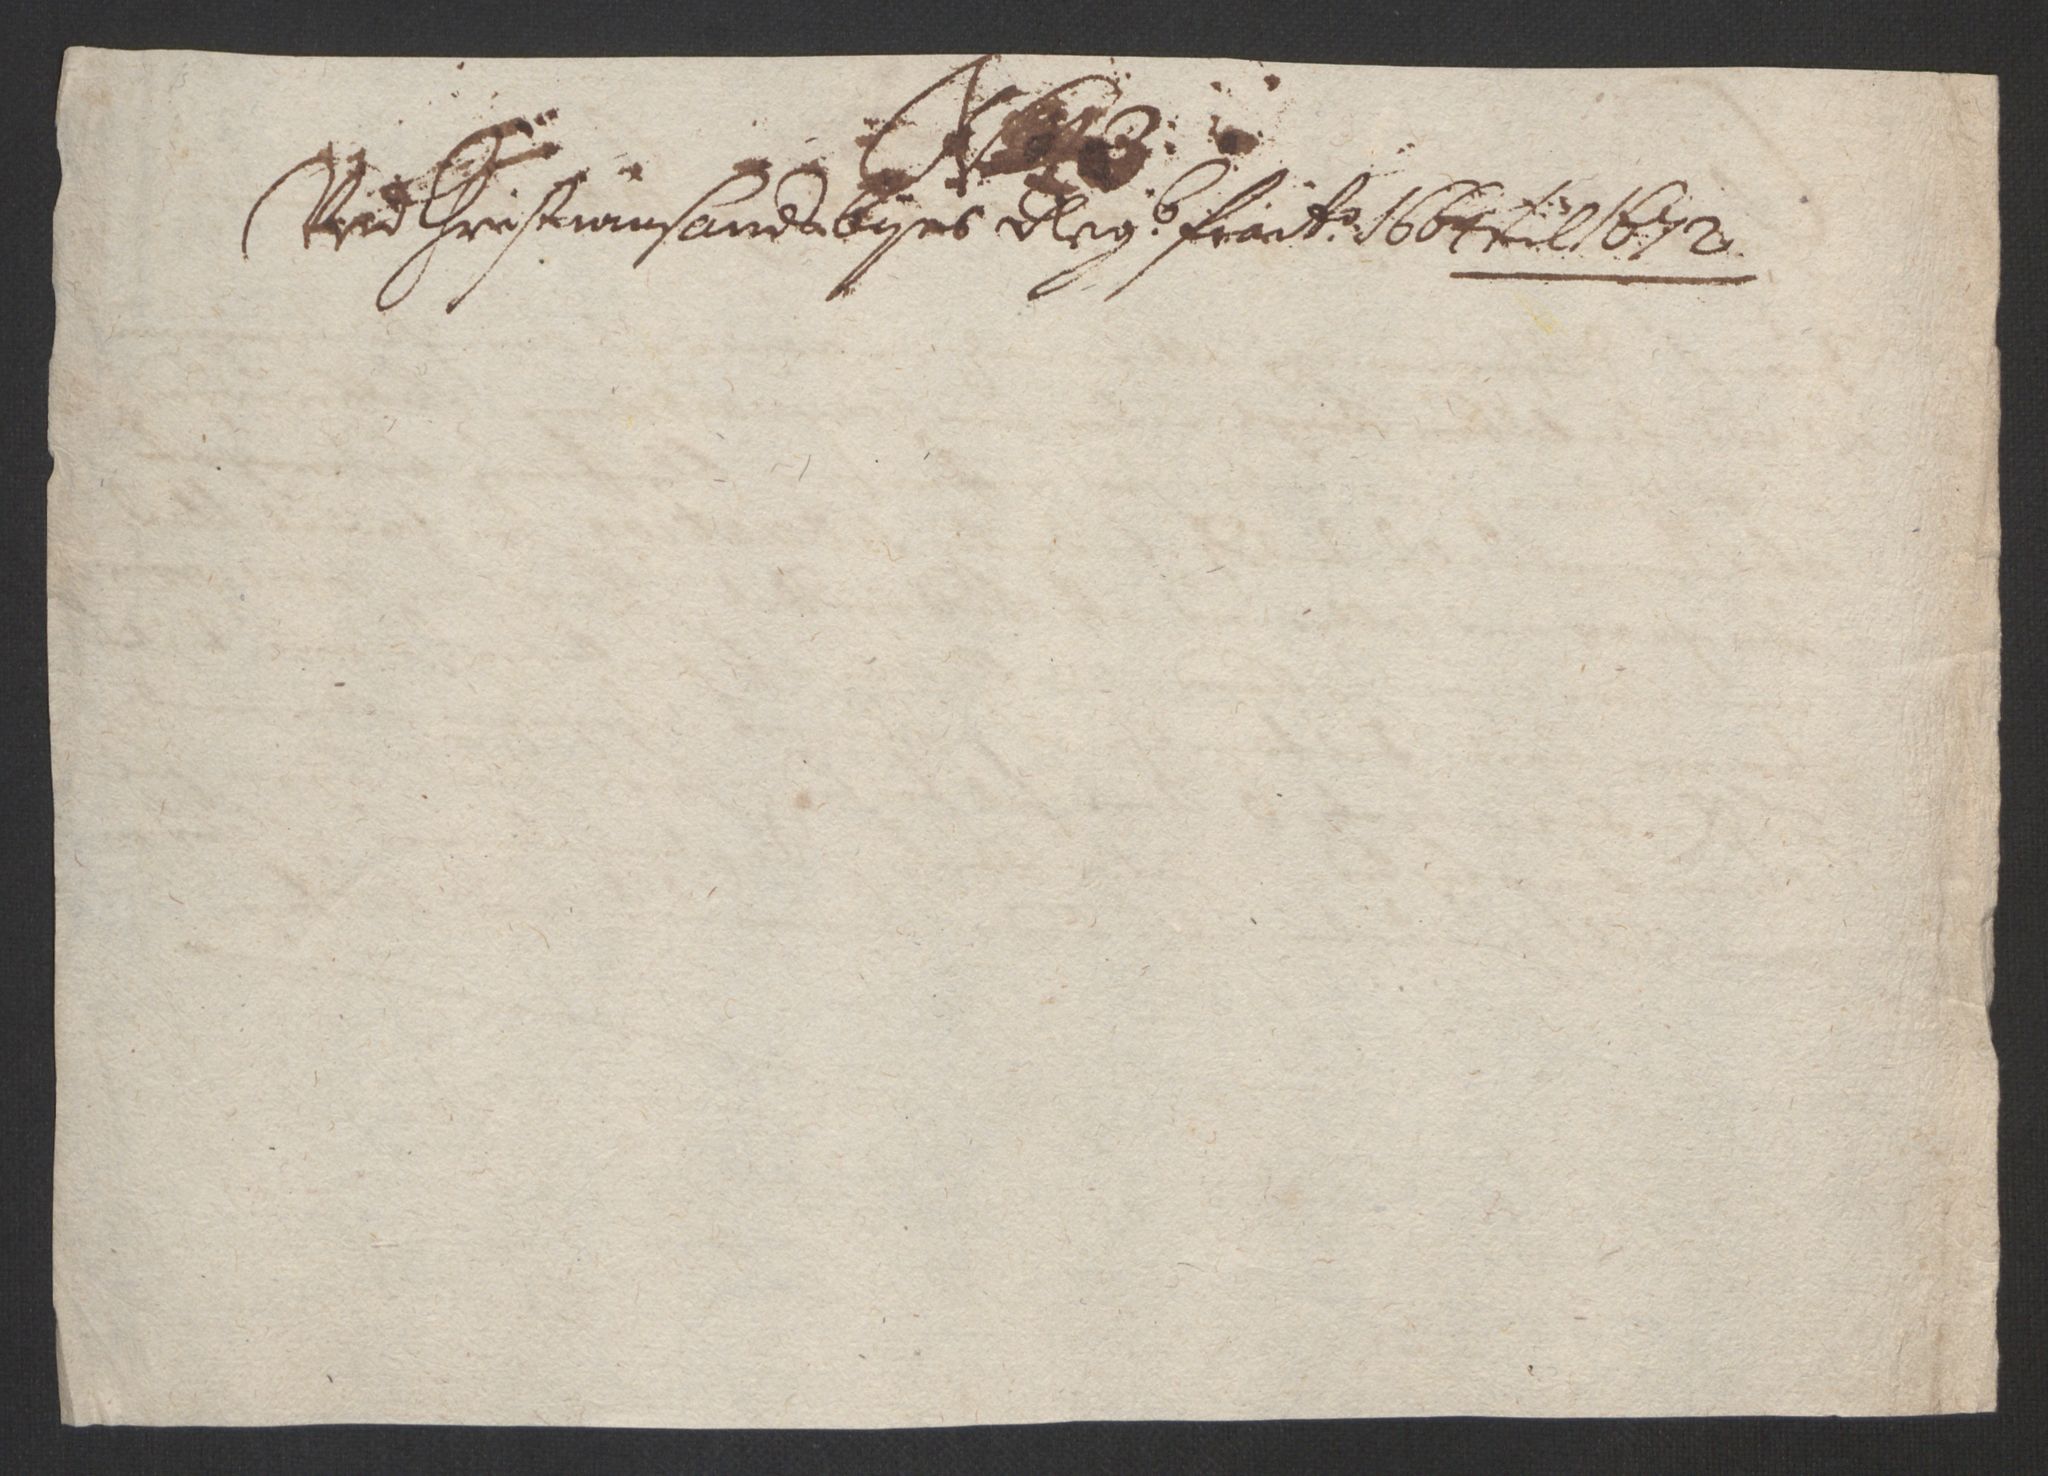 N 3.
Ved Christiansands byes Regb. fra Ao. 1664 til 1672.